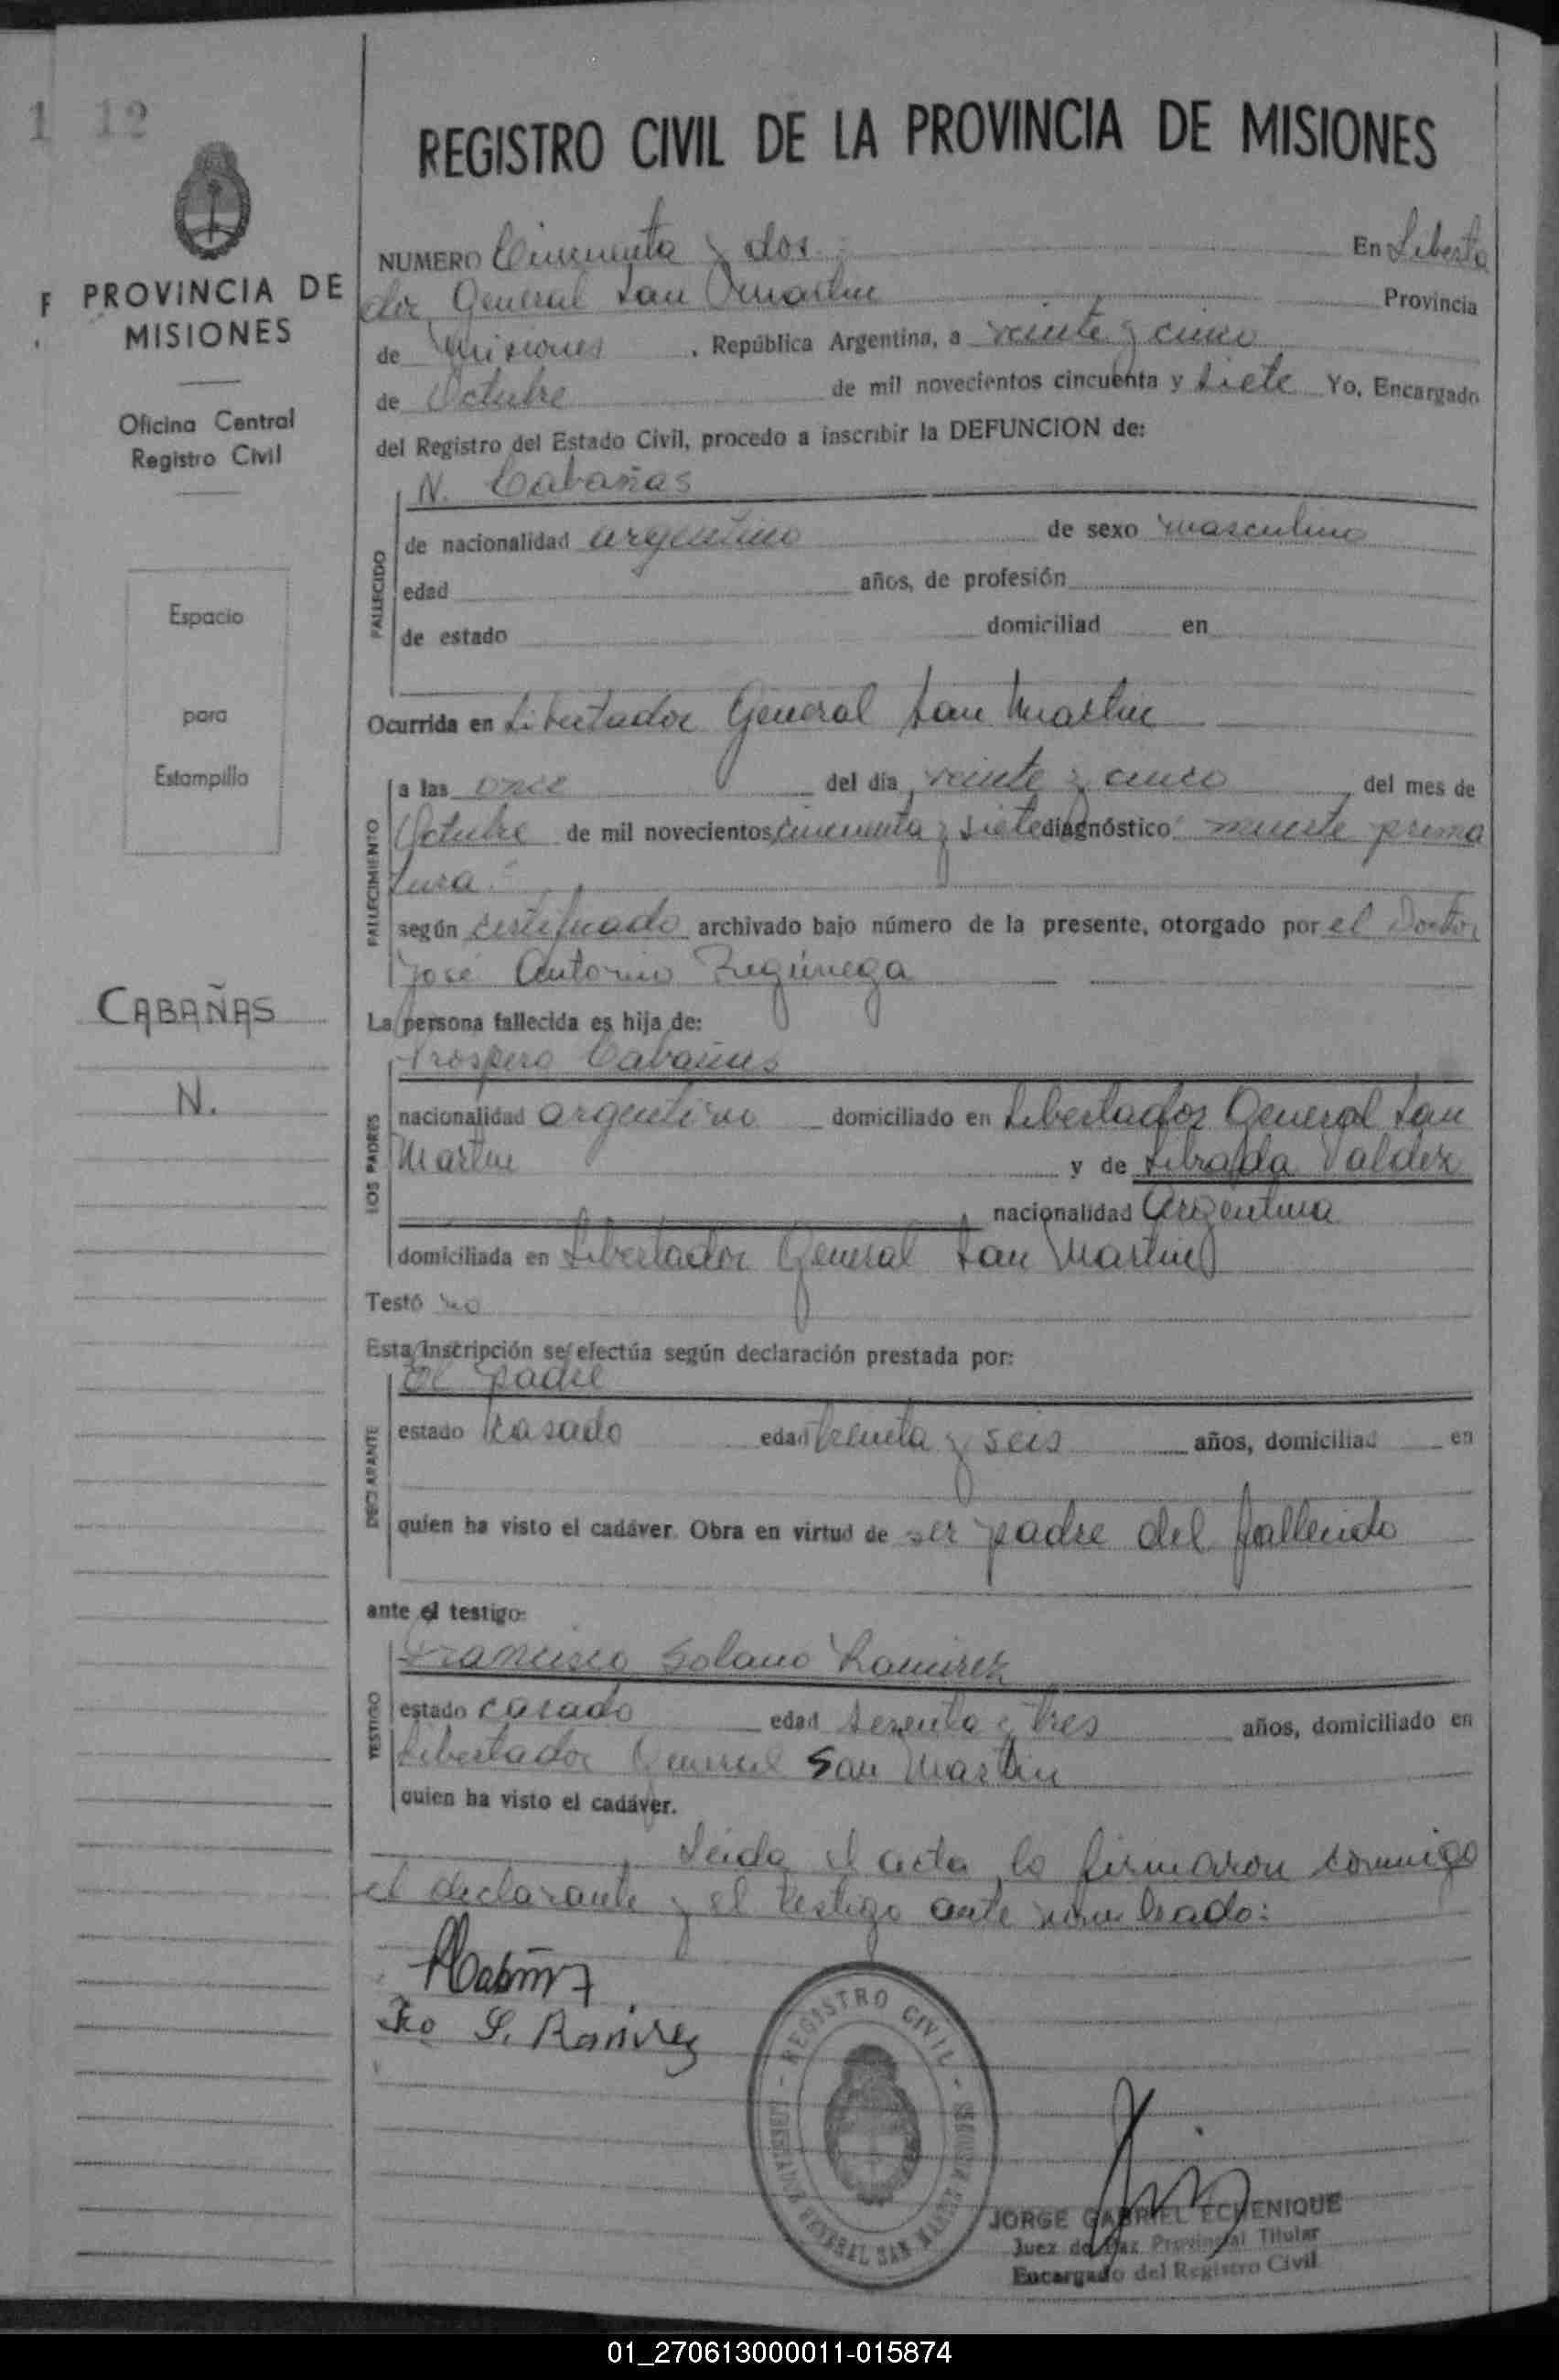 1 12
REGISTRO CIVIL DE LA PROVINCIA DE MISIONES
F PROVINCIA DE
MISIONES
Oficina Central
Registro Civil
Espacio
para
Estampilla
CABAÑAS
N.
NUMERO Cincuenta y dos En Liberta
dor General San Martin Provincia
de Misiones, República Argentina, a veinte y cinco
de Octubre de mil novecientos cincuenta y siete Yo, Encargado
del Registro del Estado Civil, procedo a inscribir la DEFUNCION de:
N. Cabañas
FALLECIDO
de nacionalidad argentino de sexo masculino
edad años, de profesión
de estado domiciliad en
Ocurrida en Libertador General San Martin
FALLECIMIENTO
a las once del día veinte y cinco del mes de
Octubre de mil novecientos cincuenta y siete diagnóstico: muerte prema
tura
según certificado archivado bajo número de la presente, otorgado por el Doctor
José Antonio
La persona fallecida es hija de:
Prospero Cabañas
LOS PADRES
nacionalidad argentino domiciliado en Libertador General San
Martin y de Librada Valdez
nacionalidad Argentina
domiciliada en Libertador General San Martin
Testó no
Esta inscripción se efectúa según declaración prestada por:
El padre
DECLARANTE
estado casado edad treinta y seis años, domiciliad en
quien ha visto el cadáver. Obra en virtud de ser padre del fallecido
ante el testigo:
Francisco Solano Ramirez
TESTIGO
estado casado edad sesenta y tres años, domiciliado en
Libertador General San Martin
quien ha visto el cadáver.
Leida el acta, la firmaron conmigo
el declarante y el testigo ante nombrado:
Fco S. Ramirez
- REGISTRO CIVIL -
LIBERTADOR GENERAL SAN MARTIN
JORGE GABRIEL ECHENIQUE
Juez de Paz Provincial Titular
Encargado del Registro Civil
01_270613000011-015874